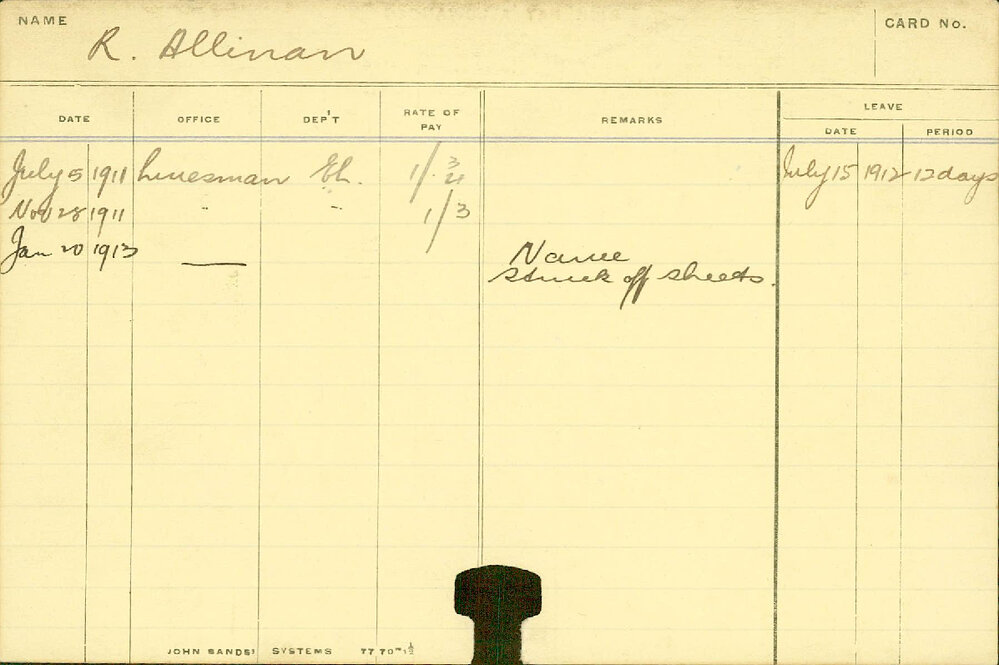 NAME
R. Allinan
CARD No.
DATE OFFICE DEP'T RATE OF PAY REMARKS LEAVE
DATE PERIOD
July 5 1911 Linesman El. 1/. July 15 1912 12 days
Nov 28 1911 " " 1/3
Jan 20 1913 — Name
struck off sheets.
JOHN SANDS' SYSTEMS 77 70